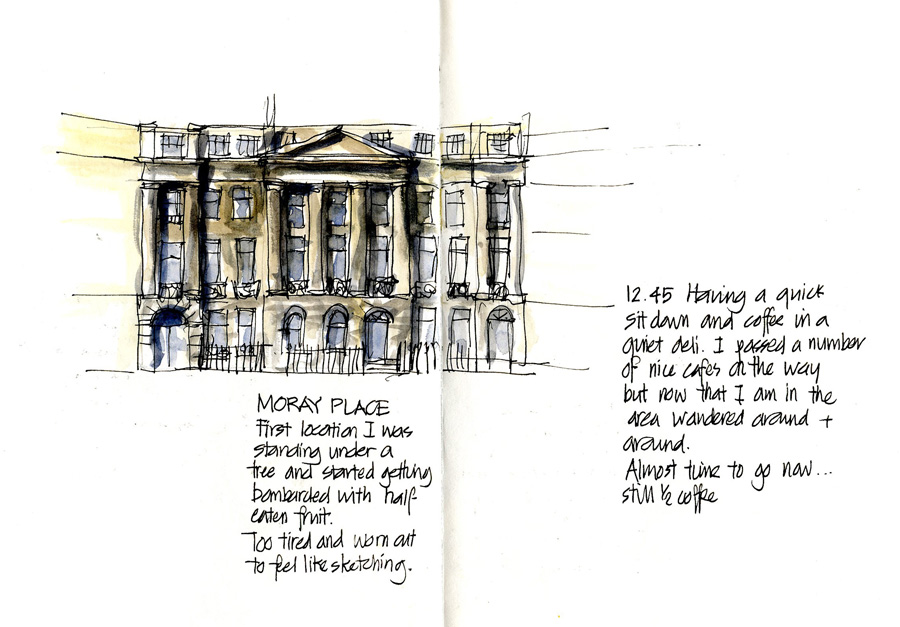 MORAY PLACE
First location I was
standing under a
tree and started getting
bombarded with half
eaten fruit.
Too tired and worn out
to feel like sketching.
12.45 Having a quick
sit down and coffee in a
quiet deli. I passed a number
of nice cafes on the way
but now that I am in the
area wandered around +
around.
Almost time to go now...
still ½ coffee